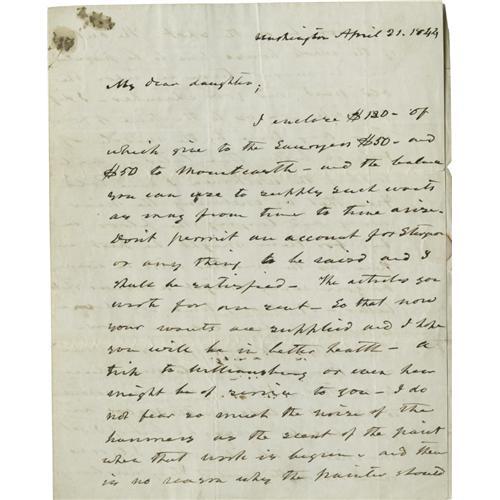 Washington April 21. 1844
My dear daughter;
I enclose $130 - of
which give to the $50 - and
$50 to - and the balance
you can use to supply such wants
as may from time to time arise.
Don't permit an account for
or any thing to be raised and I
shall be satisfied - The articles you
wrote for are sent - So that now
your wants are supplied and I hope
you will be in better health - a
trip to Williamsburg or even here
might be of service to you - I do
not fear so much the noise of the
hammers as the scent of the paint
when that work is begun - and there
is no reason why the painter should